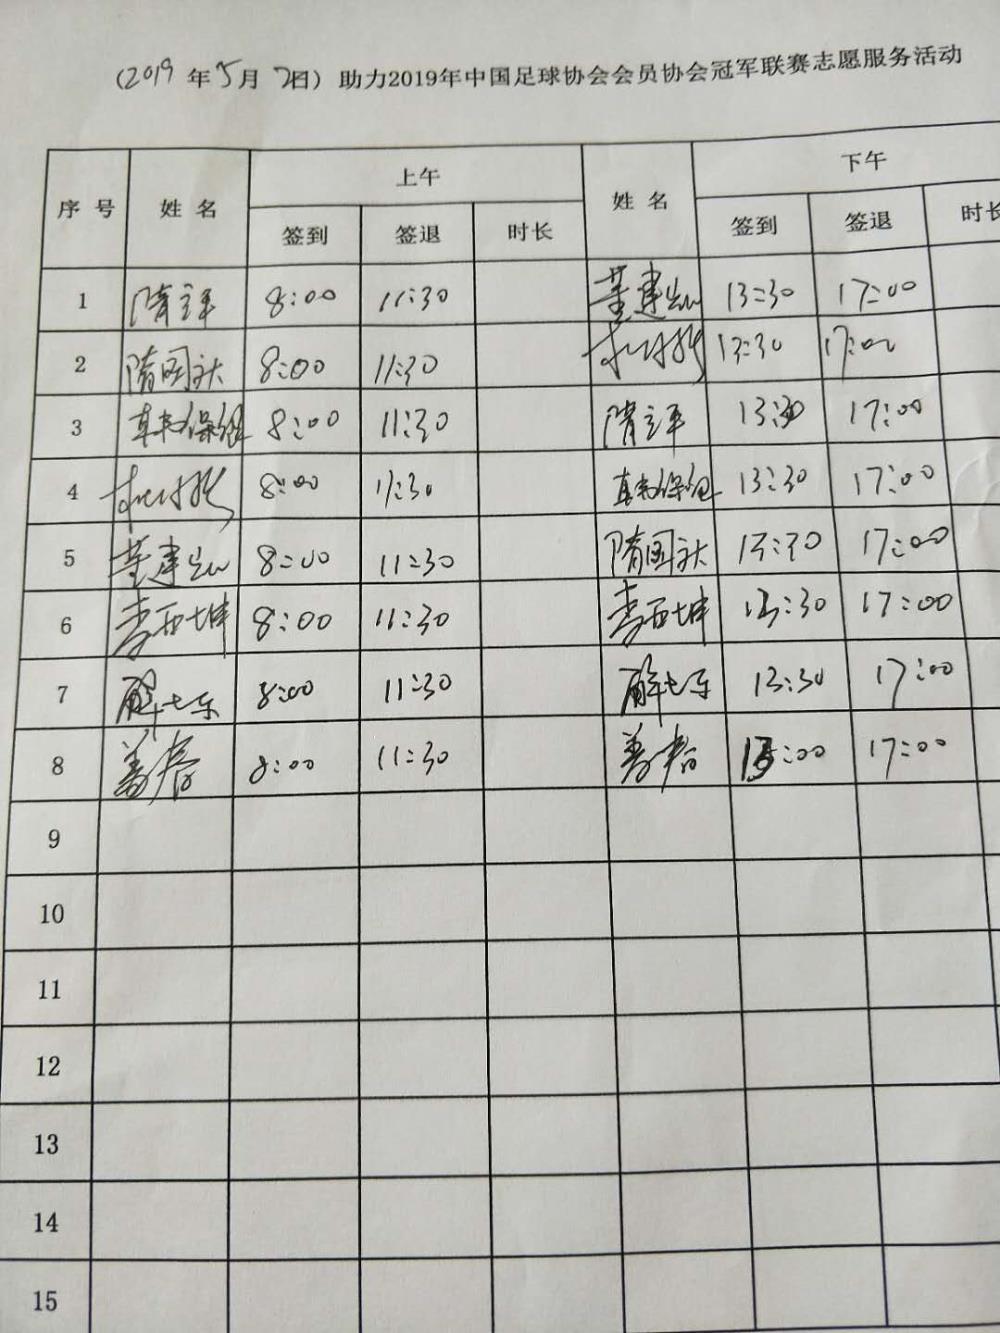 (2019年5月7日) 助力2019年中国足球协会会员协会冠军联赛志愿服务活动
序号 姓名 上午 姓名 下午
签到 签退 时长 签到 签退 时长
1 隋立平 8:00 11:30 董建 13:30 17:00
2 隋国 8:00 11:30 13:30 17:00
3 韩保 8:00 11:30 隋立平 13:30 17:00
4 8:00 11:30 韩保 13:30 17:00
5 董建 8:00 11:30 隋国 13:30 17:00
6 李西坤 8:00 11:30 李西坤 13:30 17:00
7 解 8:00 11:30 解 13:30 17:00
8 姜春 8:00 11:30 姜春 :00 17:00
9
10
11
12
13
14
15